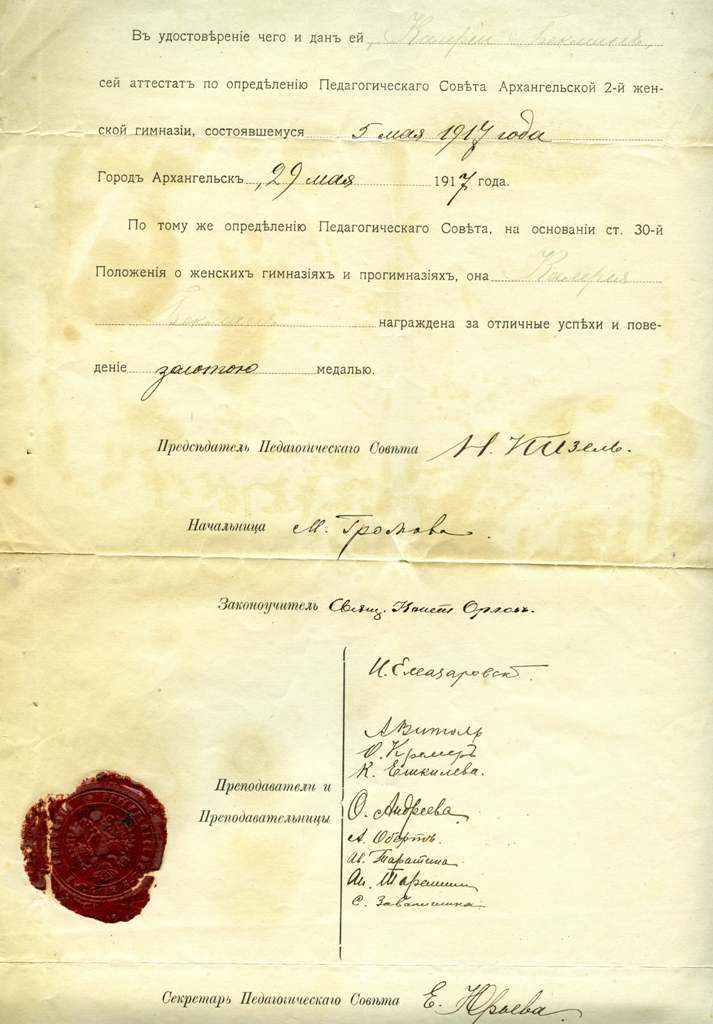 Въ удостовѣреніе чего и данъ ей, Валеріи
сей аттестатъ по опредѣленію Педагогическаго Совѣта Архангельской 2-й жен-
ской гимназіи, состоявшемуся 5 мая 1917 года
Городъ Архангельскъ, 29 мая 1917 года.
По тому же опредѣленію Педагогическаго Совѣта, на основаніи ст. 30-й
Положенія о женскихъ гимназіяхъ и прогимназіяхъ, она Валерія
награждена за отличные успѣхи и пове-
деніе золотою медалью.
Предсѣдатель Педагогическаго Совѣта Н. Кизель.
Начальница М. Громова.
Законоучитель Свящ. Конст. Орловъ.
А Витоль
О. Кремеръ
К. Ешкилева.
Преподаватели и
О. Андреева
Преподавательницы
Ав. Таратина
С. Завалишина
Секретарь Педагогическаго Совѣта Е. Юрьева.